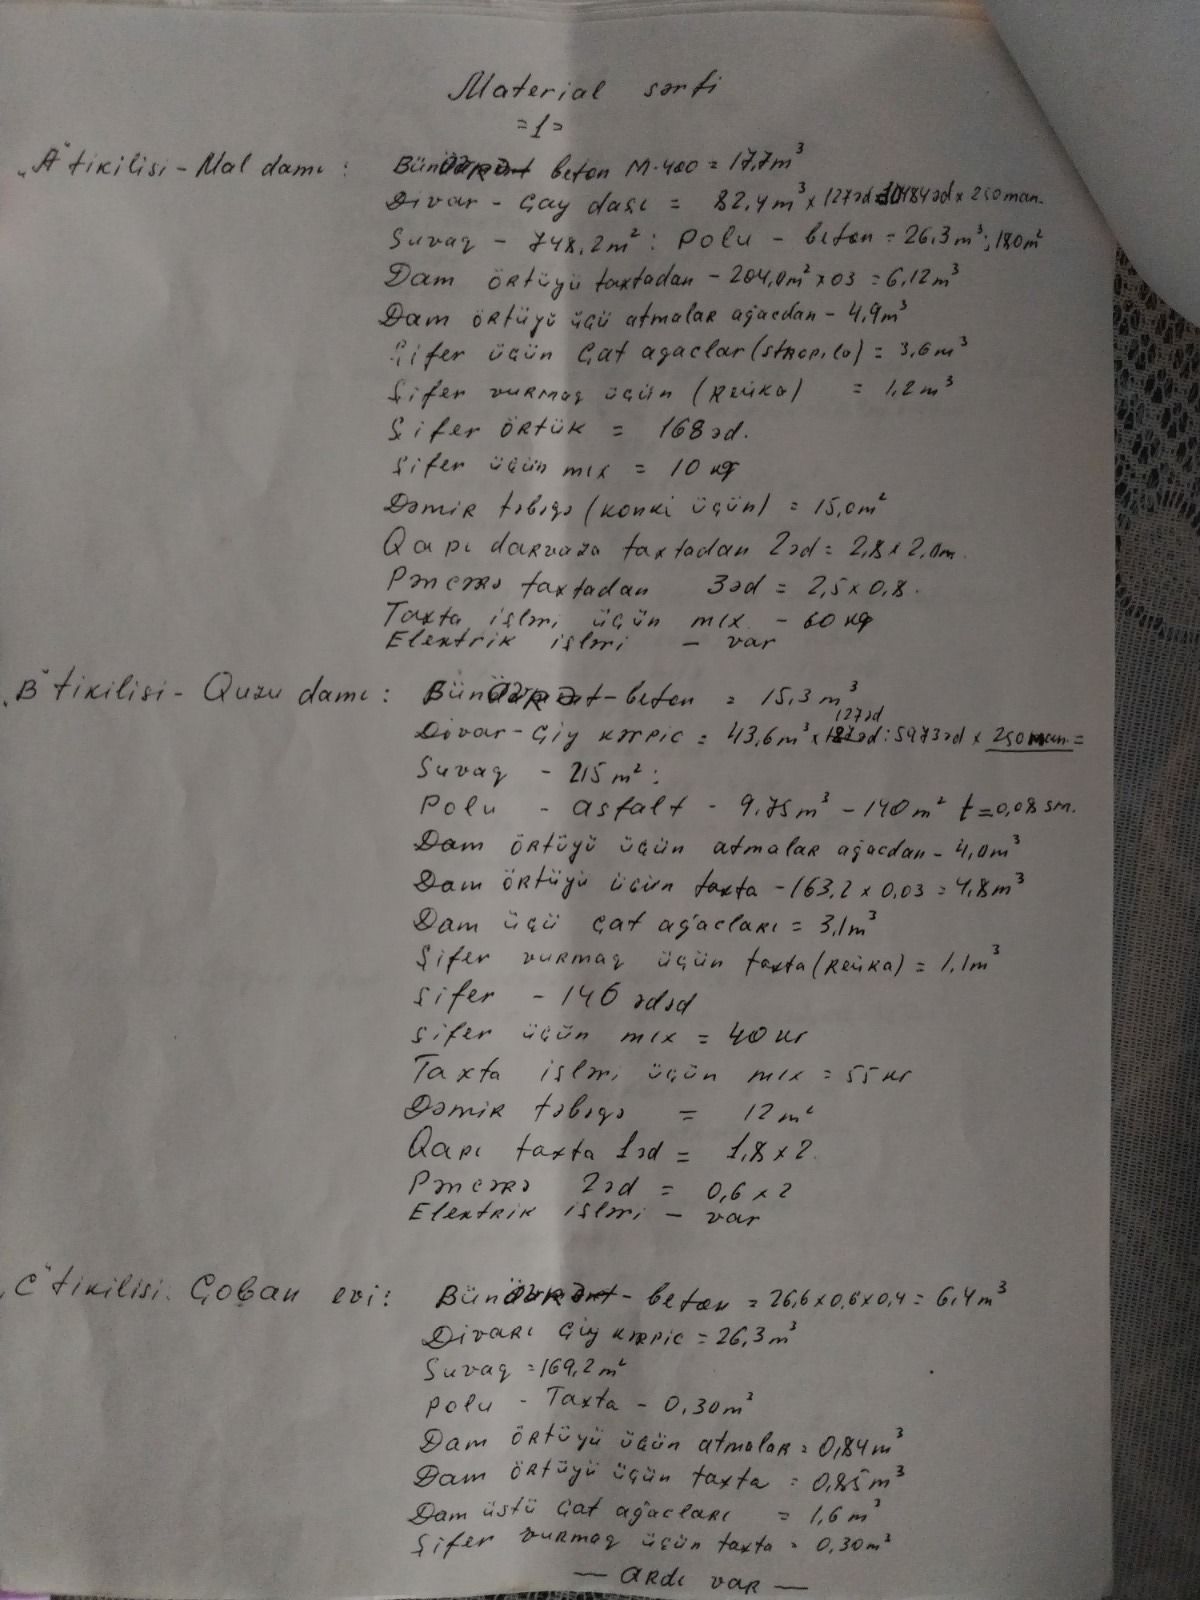 Material sərfi
=1=
"A" tikilisi - Mal damı: Bünövrəsi beton M-400 = 17,7m³
Divar - Çay daşı = 82,4m³ x 127əd 10484əd x 250man.
Suvaq - 748,2m² : Polu - beton = 26,3m³; 180m²
Dam örtüyü taxtadan - 204,0m² x 03 = 6,12m³
Dam örtüyü üçü atmalar ağacdan - 4,9m³
Şifer üçün Çat agaclar (stropila) = 3,6m³
Şifer vurmaq üçün (Reйka) = 1,2m³
Şifer örtük = 168əd.
Şifer üçün mıx = 10 кg
Dəmir təbəqə (konki üçün) = 15,0m²
Qapı darvaza taxtadan 2əd = 2,8 x 2,0m.
Pəncərə taxtadan 3əd = 2,5 x 0,8.
Taxta işləri üçün mıx - 60 кg
Elektrik işləri - var
"B" tikilisi - Quzu damı: Bünövrəsi - beton = 15,3m³
127əd
Divar - Çiy kərpic = 43,6m³ x 127əd : 5973əd x 250man =
Suvaq - 215m² :
Polu - asfalt - 9,75m³ - 140m² t=0,08sm.
Dam örtüyü üçün atmalar ağacdan - 4,0m³
Dam örtüyü üçün taxta - 163,2 x 0,03 = 4,8m³
Dam üçü çat ağacları = 3,1m³
Şifer vurmaq üçün taxta (Reйka) = 1,1m³
Şifer - 146 ədəd
Şifer üçün mıx = 40 кг
Taxta işləri üçün mıx = 55 кг
Dəmir təbəqə = 12 m²
Qapı taxta 1əd = 1,8 x 2.
Pəncərə 2əd = 0,6 x 2
Elektrik işləri - var
"C" tikilisi. Çoban evi: Bünövrəsi - beton = 26,6 x 0,6 x 0,4 = 6,4m³
Divarı Çiy kərpic = 26,3m³
Suvaq = 169,2m²
Polu - Taxta - 0,30m³
Dam örtüyü üçün atmalar = 0,84m³
Dam örtüyü üçün taxta = 0,85m³
Dam üstü Çat ağacları = 1,6m³
Şifer vurmaq üçün taxta = 0,30m³
— ardı var —